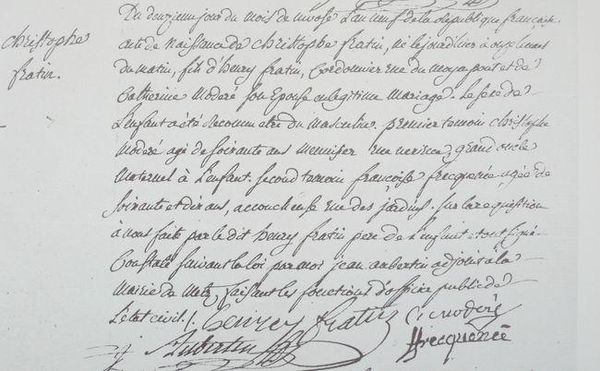 Christophe
fratin.
Du deuxieme jour du mois de nivose l'an neuf de la république francaise
acte de Naissance de Christophe fratin, né le jour d'hier à onze heures
du matin, fils d'henry fratin, Cordonnier rue du moyen pont et de
Catherine Moderé son Epouse en legitime Mariage. Le sexe de
L'enfant a été Reconnu etre du Masculin. premier temoin Christophe
Moderé agé de soixante ans Menuisier grand oncle
Maternel à L'enfant. second temoin francoise frecquenée agée de
Soixante et dix ans, accoucheuse rue des jardins. sur la requisition
à nous faite par le dit henry fratin pere de L'enfant et ont signé
Constaté suivant la loi par moi jean aubertin adjoint à la
Mairie de Metz, faisant les fonctions d'officier public de
l'état civil.
henrey fratin C. moderé
Aubertin frecquenée